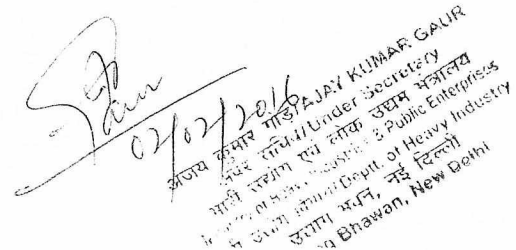 Gaur
02/02/2016
अजय कुमार गौड़/AJAY KUMAR GAUR
अवर सचिव/Under Secretary
भारी उद्योग एवं लोक उद्यम मंत्रालय
of & Public Enterprises
उद्योग Deptt. of Heavy Industry
उद्योग भवन, नई दिल्ली
Bhawan, New Delhi